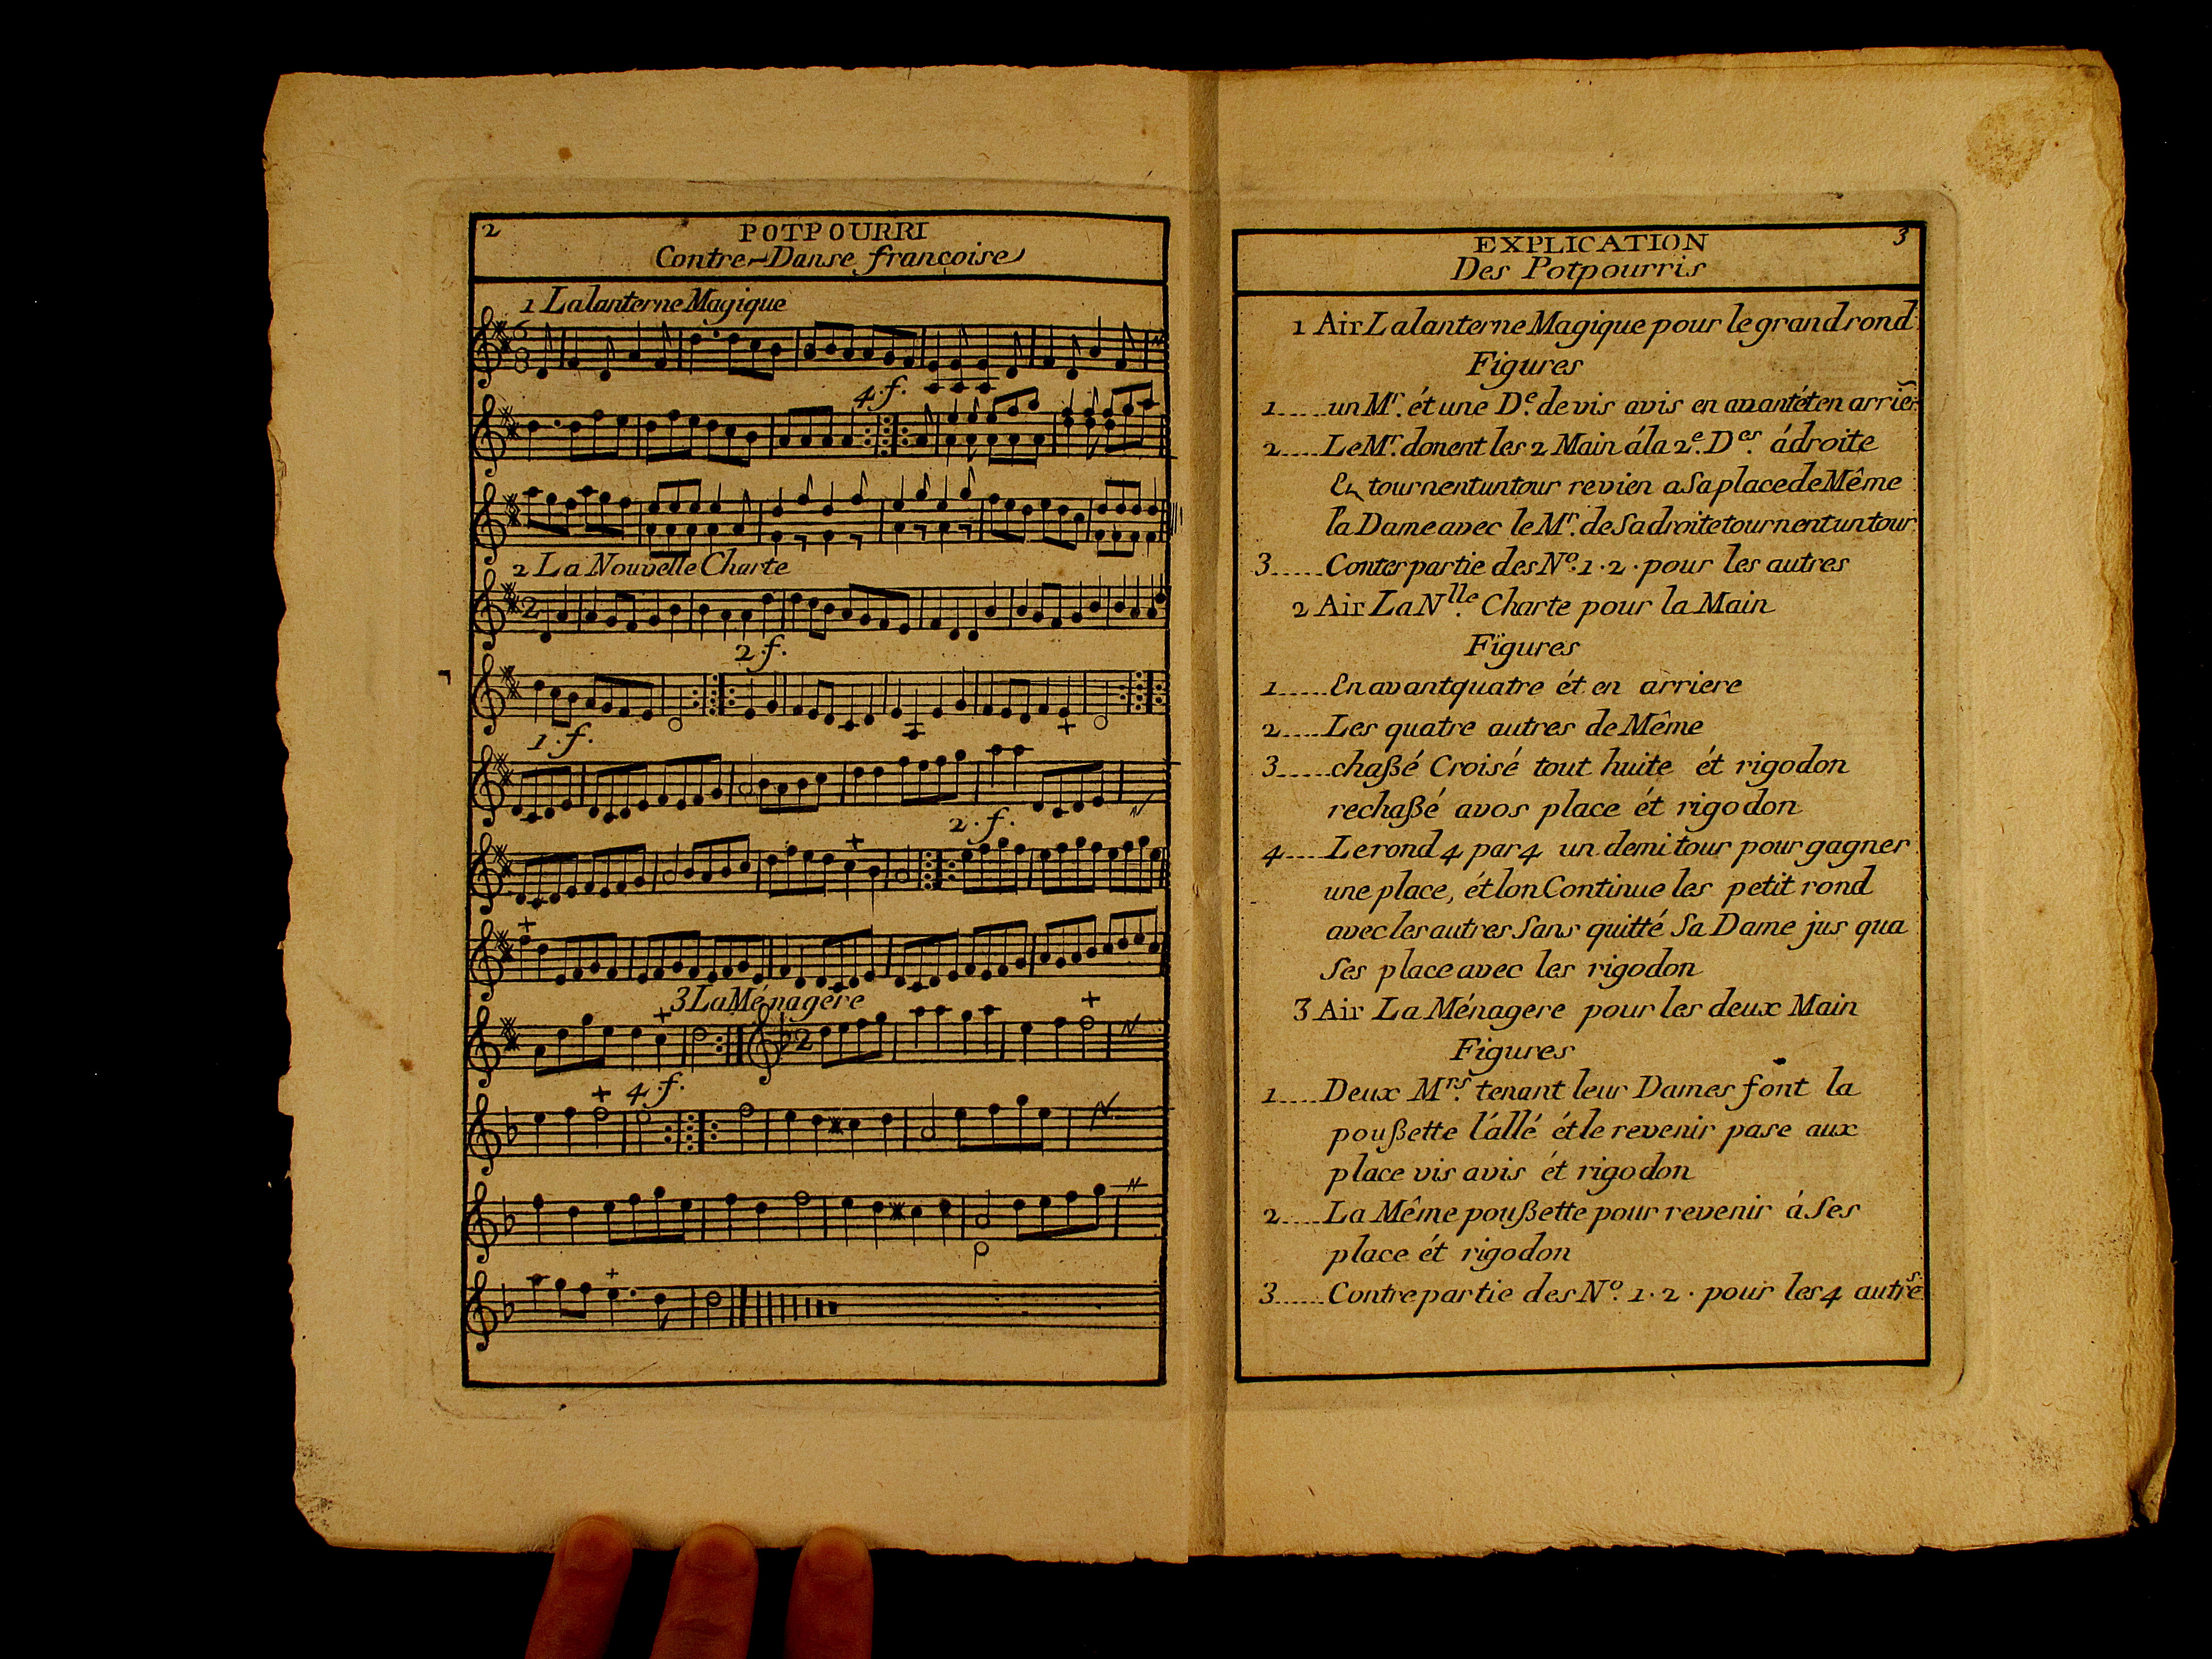 2
POTPOURRI
Contre-Danse françoise
1 La lanterne Magique
4.f.
2 La Nouvelle Charte
2.f.
1.f.
2.f.
3 La Ménagere
4.f.
p
EXPLICATION 3
Des Potpourris
1 Air La lanterne Magique pour le grand rond
Figures
1.....un Mr. ét une De. de vis avis en avant ét en arriers
2....Le Mr. donent les 2 Main á la 2e. Des. á droite
En tournent un tour revien a Sa place de Même
la Dame avec le Mr. de Sa droite tournent un tour
3.....Conter partie des No. 1.2. pour les autres
2 Air La Nlle. Charte pour la Main
Figures
1.....En avant quatre ét en arriere
2....Les quatre autres de Même
3.....chaßé Croisé tout huite ét rigodon
rechaßé avos place ét rigodon
4....Le rond 4 par 4 un demi tour pour gagner
une place, ét lon Continue les petit rond
avec les autres Sans quitté Sa Dame jus qua
Ses place avec les rigodon
3 Air La Ménagere pour les deux Main
Figures
1....Deux Mrs. tenant leur Dames font la
poußette l'állé ét le revenir pase aux
place vis avis ét rigodon
2....La Même poußette pour revenir á Ses
place ét rigodon
3.....Contre partie des No. 1.2. pour les 4 autres